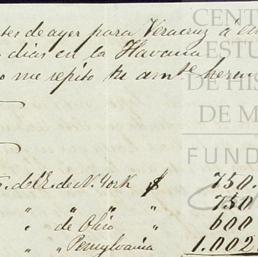 tes de ayer para Veracruz á
dias en la Havana
me repito tu amte herm
CENT
ESTU
DE HIS
DE M
FUND
F. del E. de N. York $ 750.
" " " " 750
" de Ohio " 600
" " Pensylvania 1.002